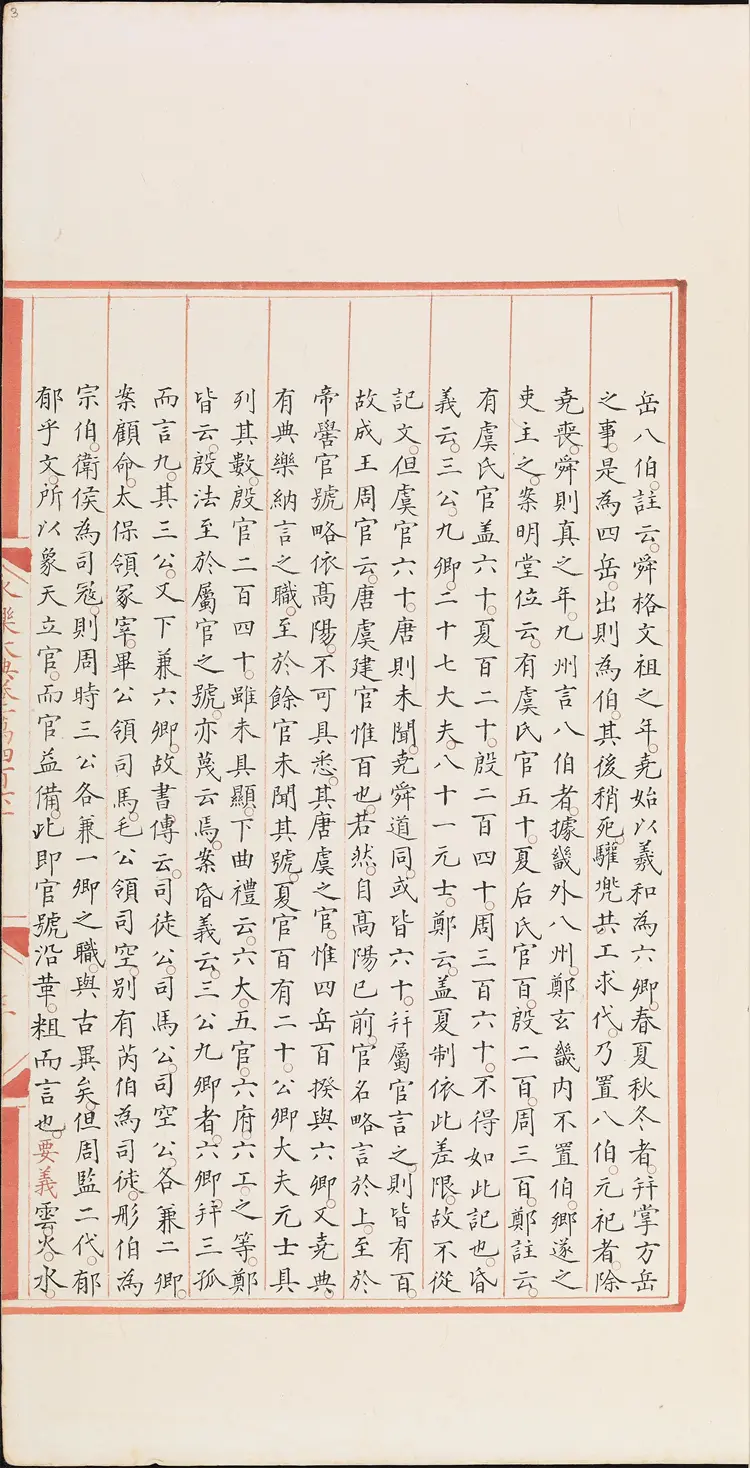 岳八伯。註云。舜格文祖之年。堯始以羲和為六卿。春夏秋冬者。并掌方岳
之事。是為四岳。出則為伯。其後稍死。驩兠共工求代。乃置八伯。元祀者。除
堯喪。舜則真之年。九州言八伯者。據畿外八州。鄭玄畿内不置伯。鄉遂之
吏主之。案明堂位云。有虞氏官五十。夏后氏官百。殷二百。周三百。鄭註云。
有虞氏官盖六十。夏百二十。殷二百四十。周三百六十。不得如此記也。昏
義云。三公。九卿。二十七大夫。八十一元士。鄭云。盖夏制依此差限。故不從
記文。但虞官六十。唐則未聞。堯舜道同。或皆六十。并屬官言之。則皆有百。
故成王周官云。唐虞建官惟百也。若然。自髙陽已前。官名略言於上。至於
帝嚳官號略依髙陽。不可具悉。其唐虞之官。惟四岳百揆與六卿。又堯典。
有典樂納言之職。至於餘官未聞其號。夏官百有二十。公卿大夫元士具
列其數。殷官二百四十。雖未具顯。下曲禮云。六大。五官。六府。六工。之等。鄭
皆云。殷法至於屬官之號。亦蔑云焉。案昏義云。三公九卿者。六卿。并三孤
而言九。其三公。又下兼六卿。故書傳云。司徒公。司馬公。司空公。各兼二卿。
案顧命。太保領冢宰。畢公領司馬。毛公領司空。别有芮伯為司徒。彤伯為
宗伯。衛侯為司冦。則周時三公各兼一卿之職。與古異矣。但周監二代。郁
郁乎文。所以象天立官。而官益備。此即官號沿革。粗而言也。要義雲火。水